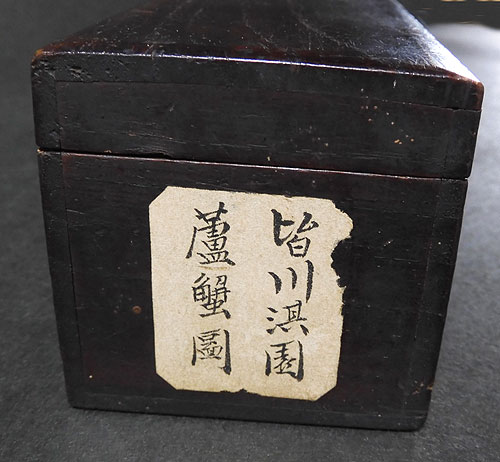 皆川淇園
蘆蟹圖